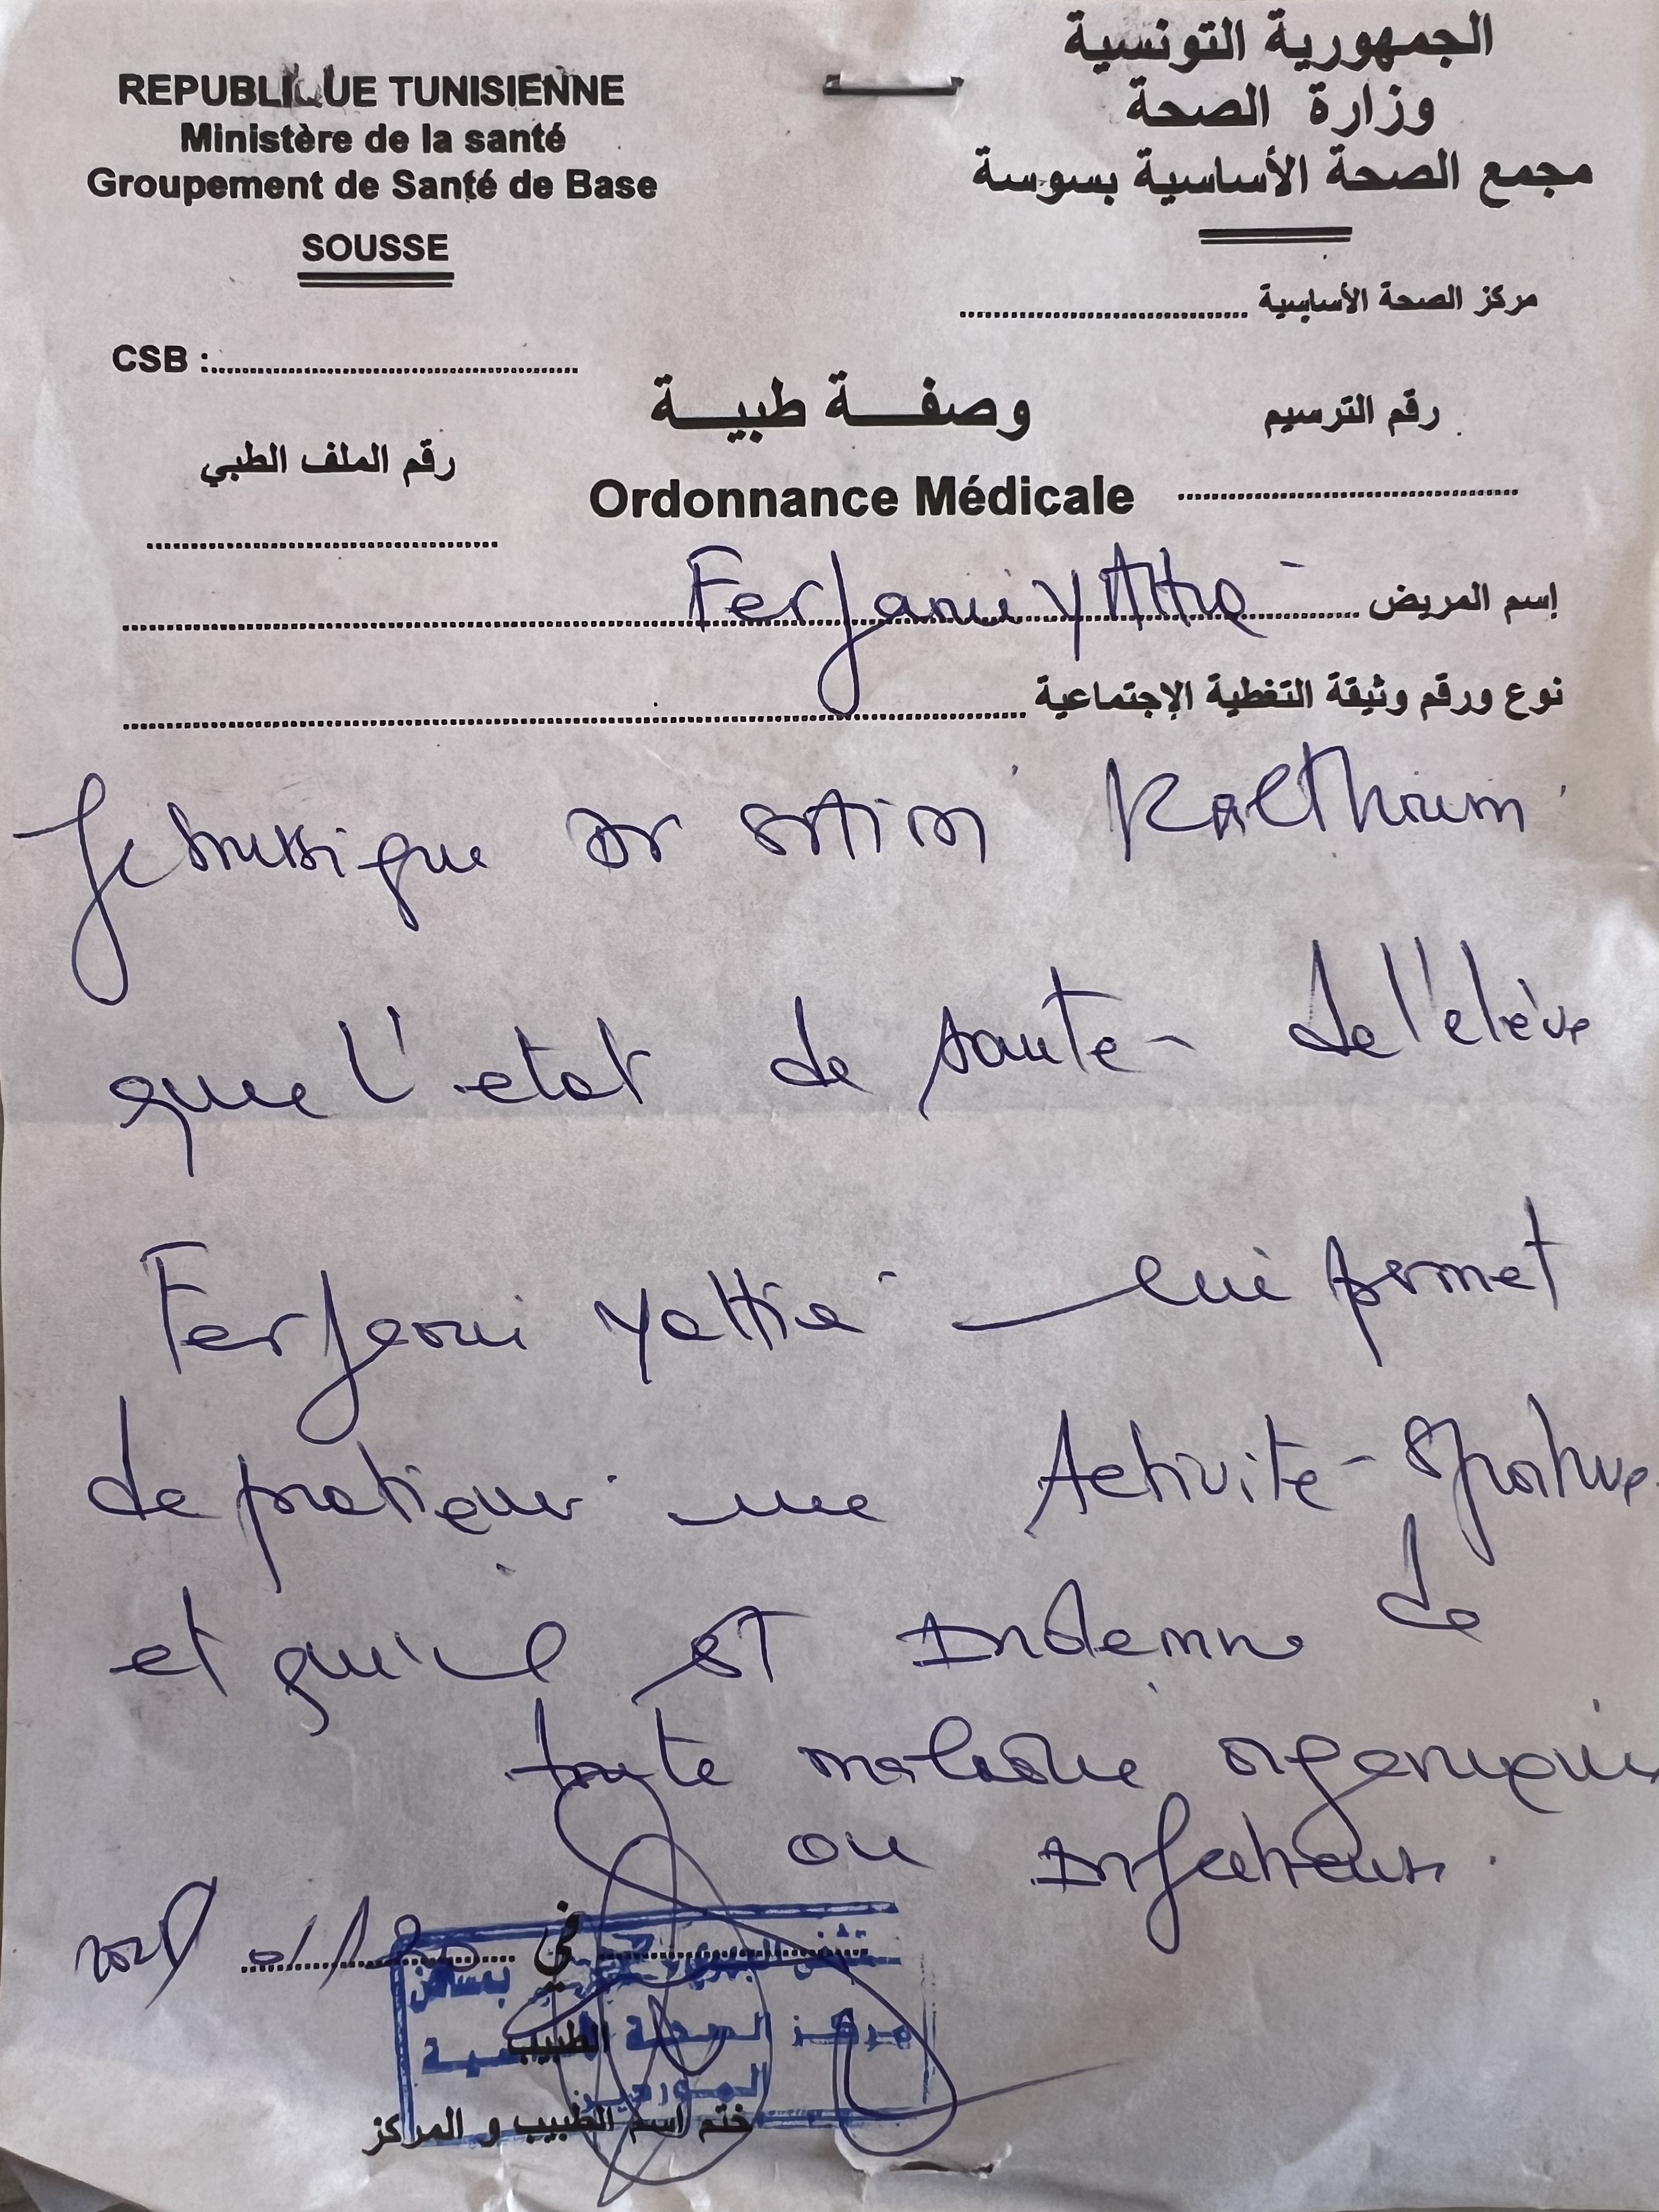 REPUBLIQUE TUNISIENNE
Ministère de la santé
Groupement de Santé de Base
SOUSSE
الجمهورية التونسية
وزارة الصحة
مجمع الصحة الأساسية بسوسة
مركز الصحة الأساسية
CSB :
وصفة طبية
رقم الترسيم
رقم الملف الطبي
Ordonnance Médicale
إسم المريض Ferjani
نوع ورقم وثيقة التغطية الإجتماعية
Je Dr Kalthoum
que l'etat de santé de l'elève
Ferjani lui permet
de pratiquer une Activité Sportive
et qu'il est Indemne de
toute maladie organique
ou Infectieuse.
في
مركز الصحة
الطبيب
ختم اسم الطبيب و المركز